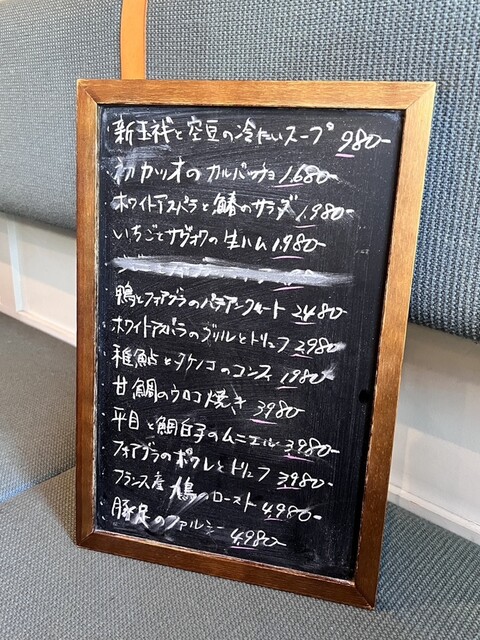 ・新玉ねぎと空豆の冷たいスープ 980-
・初カツオのカルパッチョ 1,680-
・ホワイトアスパラと鰆のサラダ 1,980-
・いちごとサヴォワの生ハム 1,980-
・鴨とフォアグラのパテアンクルート 2480-
・ホワイトアスパラのグリルとトリュフ 2,980-
・稚鮎とタケノコのコンフィ 1,980-
・甘鯛のウロコ焼き 3,980-
・平目と鯛白子のムニエル 3,980-
・フォアグラのポワレとトリュフ 3,980-
・フランス産 のロースト 4,980-
・豚足のファルシー 4,980-